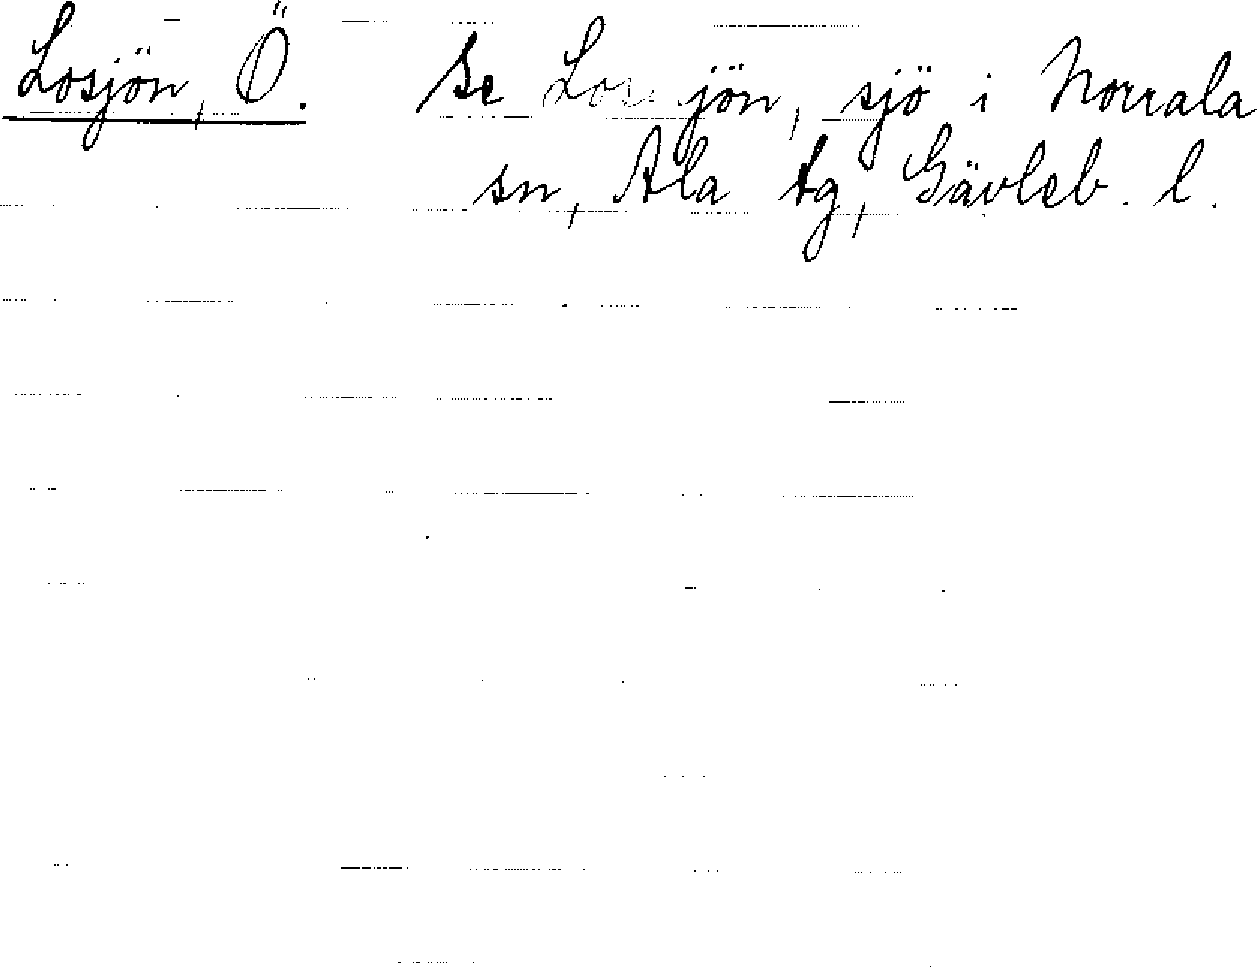 Losjön, Ö. Se Lossjön, sjö i Norrala
sn, Ala tg, Gävleb. l.